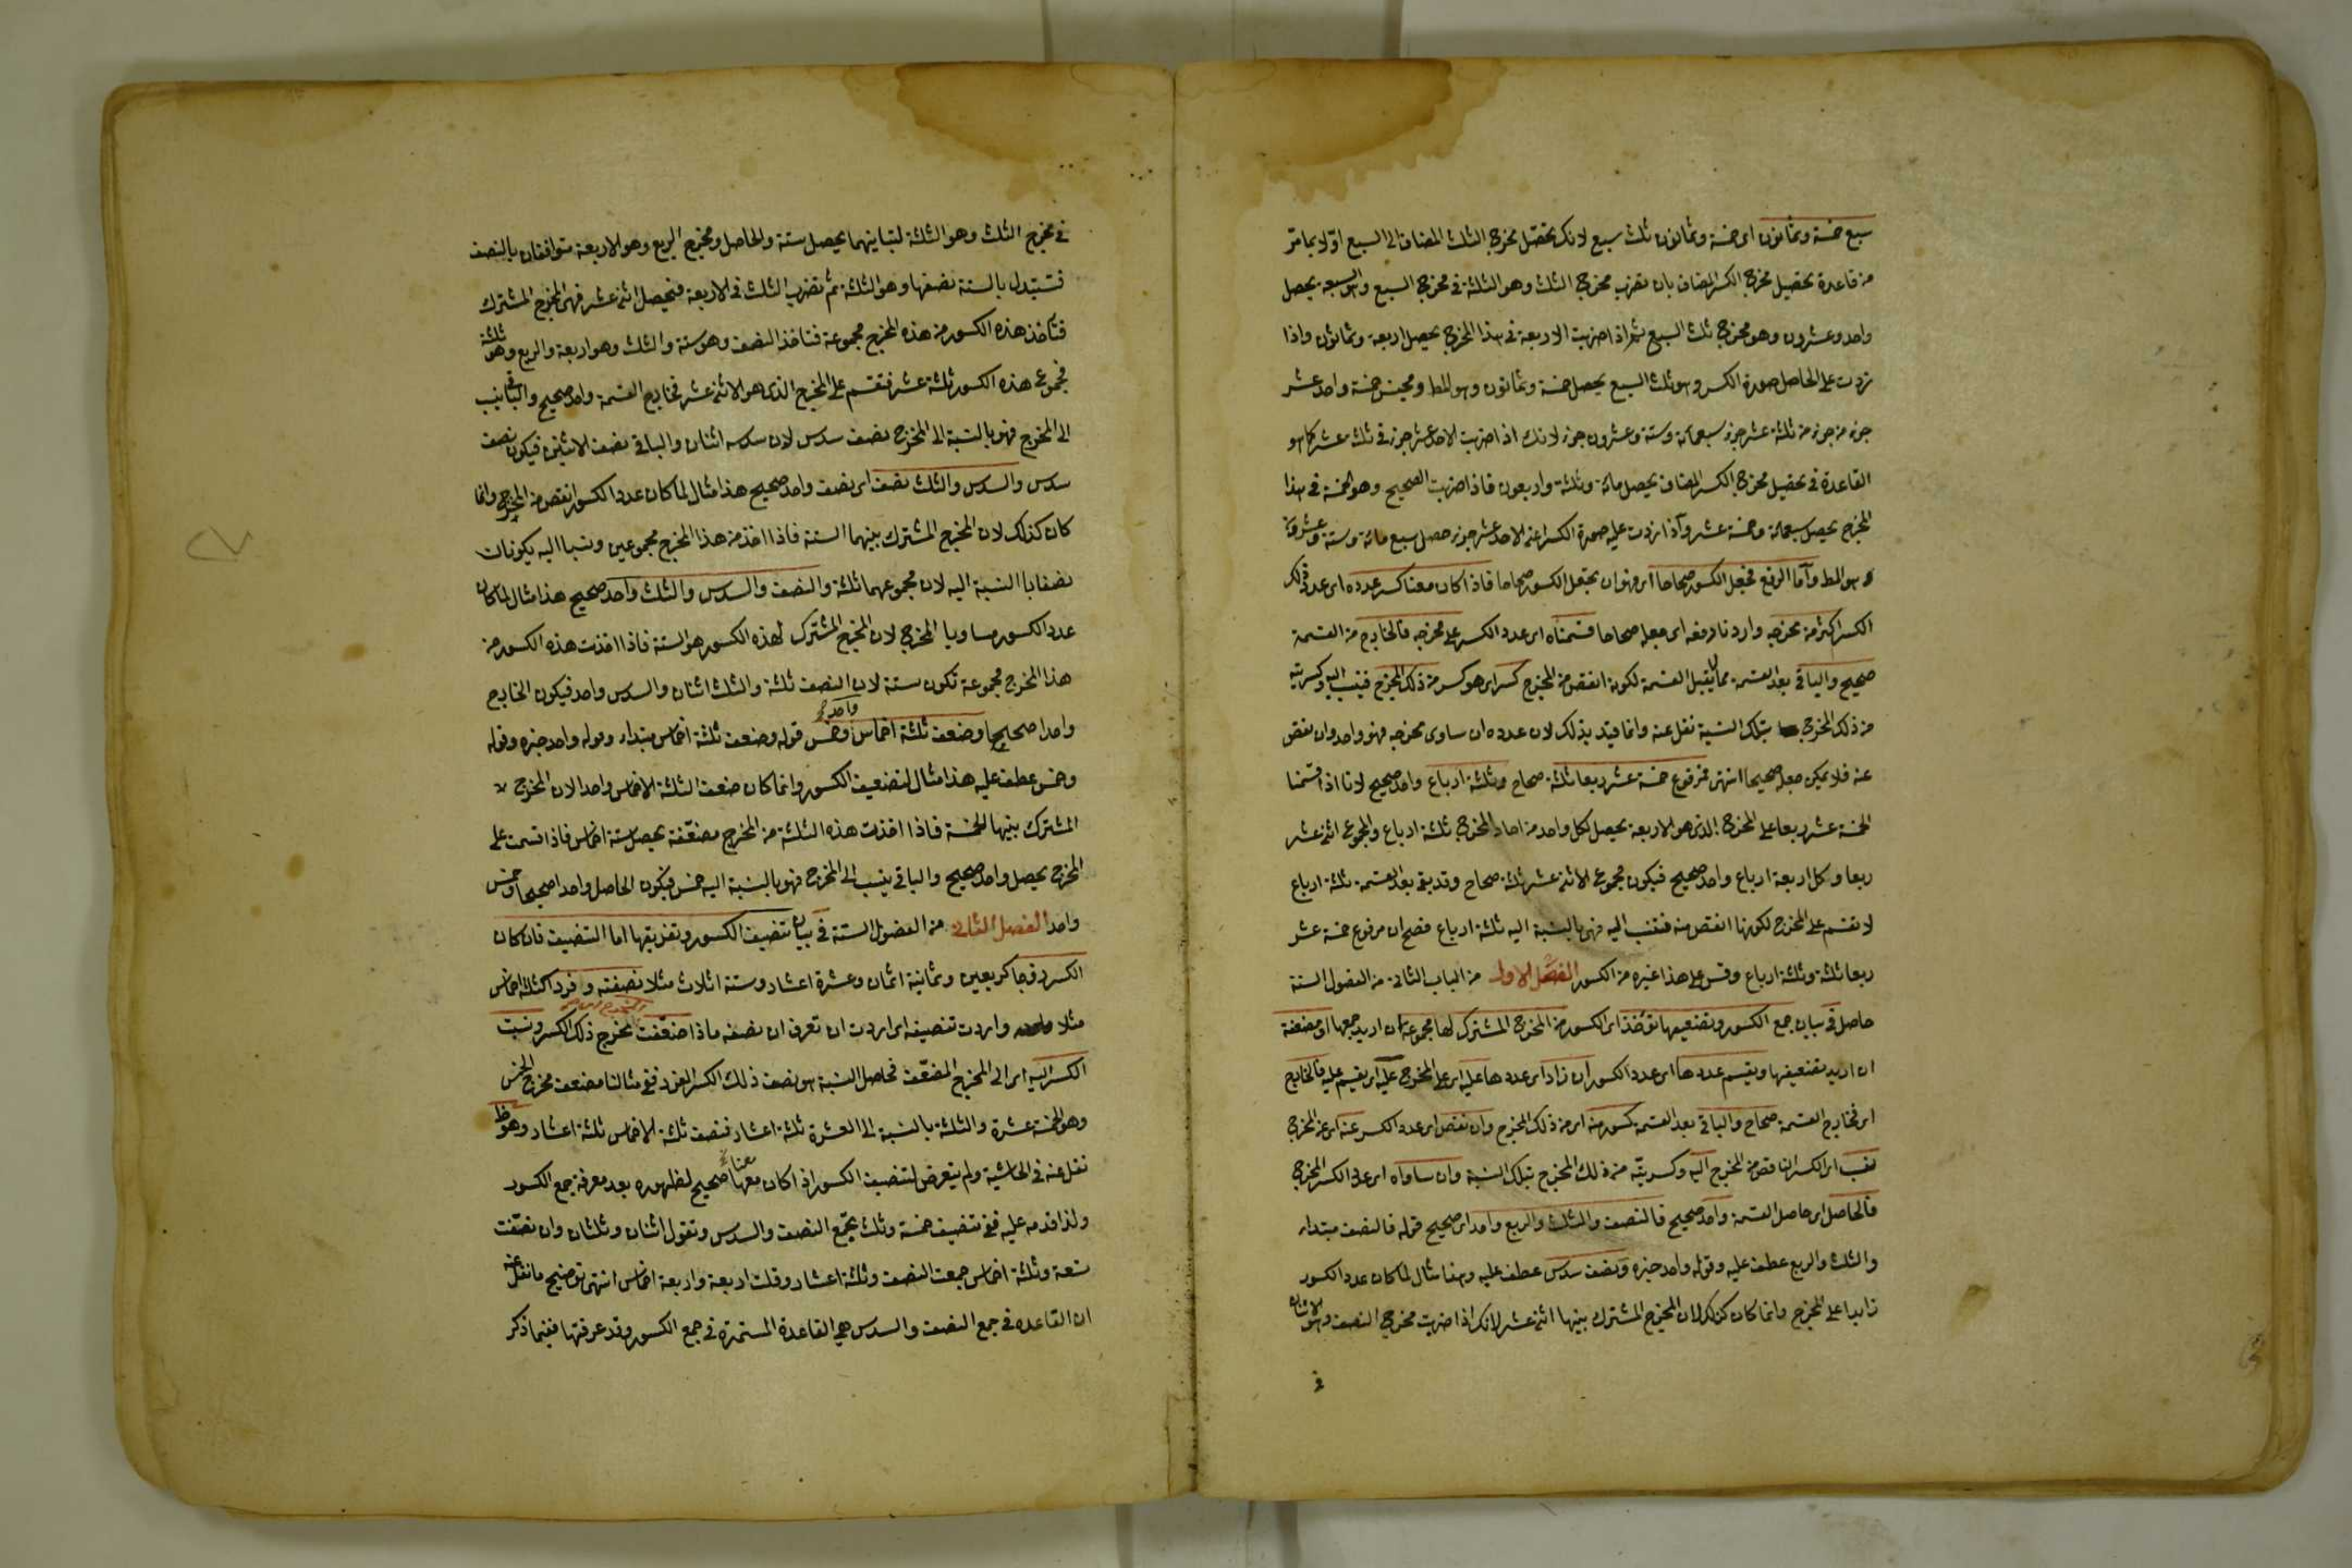 سبع خمسة وثمانون اى خمسة وثمانون ثلث سبع لانك تحصل مخرج الثلث المضاف الى السبع اولا بما مر
من قاعدة تحصيل مخرج الكسر المضاف بان تضرب مخرج الثلث وهو الثلثة فى مخرج السبع وهو السبعة يحصل
واحد وعشرون وهو مخرج ثلث السبع ثم اذا ضربت الاربعة فى هذا المخرج يحصل اربعة وثمانون واذا
زدت على الحاصل صورة الكسر وهو ثلث السبع يحصل خمسة وثمانون وهو المط ومجنس خمسة واحد عشر
جزء من جزء من ثلثة عشر جزء سبعمائة وستة وعشرون جزء لانك اذا ضربت الاحد عشر جزء فى ثلثة عشر كما هو
القاعدة فى تحصيل مخرج الكسر المضاف يحصل مائة وثلثة واربعون فاذا ضربت الصحيح وهو الخمسة فى هذا
المخرج يحصل سبعمائة وخمسة عشر واذا زدت عليه صورة الكسر اعنى الاحد عشر جزء حصل سبع مائة وستة وعشرون
وهو المط وأما الرفع فجعل الكسور صحاحا اى فهو ان يجعل الكسور صحاحا فاذا كان معنا كسر عدده اى عدد ذلك
الكسر اكثر من مخرجه واردنا رفعه اى جعله صحاحا قسمناه اى عدد الكسر على مخرجه فالخارج من القسمة
صحيح والباقى بعد القسمة مما لا يقبل القسمة لكونه انقص من المخرج كسر اى هو كسر من ذلك المخرج فينسب اليه وكسريته
من ذلك المخرج بتلك النسبة نقل عنه وانما قيد بذلك لان عدده ان ساوى مخرجه فهو واحد وان نقص
عنه فلا يمكن جعله صحيحا انتهى فمرفوع خمسة عشر ربعا ثلثة صحاح وثلثة ارباع واحد صحيح لانا اذا قسمنا
الخمسة عشر ربعا على المخرج الذى هو الاربعة يحصل لكل واحد من احاد المخرج ثلثة ارباع والمجموع اثنى عشر
ربعا وكل اربعة ارباع واحد صحيح فيكون مجموع الاثنى عشر ثلثة صحاح وقد بقى بعد القسمة ثلثة ارباع
لا تقسم على المخرج لكونها انقص منه فتنسب اليه فهى بالنسبة اليه ثلثة ارباع فصح ان مرفوع خمسة عشر
ربعا ثلثة وثلثة ارباع وقس على هذا غيره من الكسور الفصل الاول من الباب الثانى من الفصول الستة
حاصل فى بيان جمع الكسور وتضعيفها تؤخذ اى الكسور من المخرج المشترك لها مجموعة ان اريد جمعها او مضعفة
ان اريد تضعيفها ويقسم عددها اى عدد الكسور ان زاد اى عددها عليه اى على المخرج عليه اى يقسم عليه فالخارج
اى فخارج القسمة صحاح والباقى بعد القسمة كسور منه اى من ذلك المخرج وان نقص اى عدد الكسر عنه اى عن المخرج
نسب اى الكسر الناقص من المخرج اليه وكسريته من ذلك المخرج بتلك النسبة وان ساواه اى عدد الكسر المخرج
فالحاصل اى حاصل القسمة واحد صحيح فالنصف والثلث والربع واحد اى صحيح قوله فالنصف مبتداء
والثلث والربع عطف عليه وقوله واحد خبره ونصف سدس عطف عليه وهذا مثال لما كان عدد الكسور
زايدا على المخرج وانما كان كذلك لان المخرج المشترك بينها اثنى عشر لانك اذا ضربت مخرج النصف وهو الاثنان
فى
فى مخرج الثلث وهو الثلثة لتباينهما يحصل ستة والحاصل ومخرج الربع وهو الاربعة متوافقان بالنصف
فتستبدل بالستة نصفها وهو الثلثة ثم تضرب الثلث فى الاربعة فيحصل اثنى عشر فهى المخرج المشترك
فتأخذ هذه الكسور من هذه المخرج مجموعة فتاخذ النصف وهو ستة والثلث وهو اربعة والربع وهو ثلثة
فمجموع هذه الكسور ثلثة عشر فتقسم على المخرج الذى هو الاثنى عشر فخارج القسمة واحد صحيح والباقى ينسب
الى المخرج فهو بالنسبة الى المخرج نصف سدس لان سدسه اثنان والباقى نصف الاثنين فيكون نصف
سدس والسدس والثلث نصف اى نصف واحد صحيح هذا مثال لما كان عدد الكسور انقص من المخرج وانما
كان كذلك لان المخرج المشترك بينهما الستة فاذا اخذ من هذا المخرج مجموعين ونسبا اليه يكونان
نصفا بالنسبة اليه لان مجموعهما ثلثة والنصف والسدس والثلث واحد صحيح هذا مثال لما كان
عدد الكسور مساويا المخرج لان المخرج المشترك لهذه الكسور هو الستة فاذا اخذت هذه الكسور من
هذا المخرج مجموعة تكون ستة لان النصف ثلثة والثلث اثنان والسدس واحد فيكون الخارج
واحدا صحيحا وضعف ثلثة اخماس واحد وخمس قوله وضعف ثلثة اخماس مبتداء وقوله واحد خبره وقوله
وخمس عطف عليه هذا مثال لتضعيف الكسور وانما كان ضعف الثلثة الاخماس واحدا لان المخرج
المشترك بينها الخمسة فاذا اخذت هذه الثلثة من المخرج مضعفة يحصل ستة اخماس فاذا قسمت على
المخرج يحصل واحد صحيح والباقى ينسب الى المخرج فهو بالنسبة اليه خمس فيكون الحاصل واحدا صحيحا وخمس
واحد الفصل الثانى من الفصول الستة فى بيان تنصيف الكسور وتفريقها اما التنصيف فان كان
الكسر زوجا كربعين وثمانية اثمان وعشرة اعشار وستة اثلاث مثلا نصفته وفردا كثلثة اخماس
مثلا واردت تنصيفه اى اردت ان تعرف ان نصفه ماذا ضعفت مخرج ذلك الكسر ونسبت
الكسر اليه اى الى المخرج المضعف فحاصل النسبة هو نصف ذلك الكسر الفرد ففى مثالنا مضعف مخرج الخمس
وهو الخمسة عشرة والثلثة بالنسبة الى العشرة ثلثة اعشار فنصف ثلثة الاخماس ثلثة اعشار وهو ظ
نقل عنه فى الحاشية ولم يتعرض لتنصيف الكسور اذا كان معها صحيح لظهوره بعد معرفة جمع الكسور
ولذا قدمه عليه ففى تنصيف خمسة وثلث تجمع النصف والسدس وتقول اثنان وثلثان وان نصفت
تسعة وثلثة اخماس جمعت النصف وثلثة اعشار وقلت اربعة واربعة اخماس انتهى توضيح ما نقل عنه
ان القاعدة فى جمع النصف والسدس هى القاعدة المستمرة فى جمع الكسور وقد عرفتها فيما ذكر